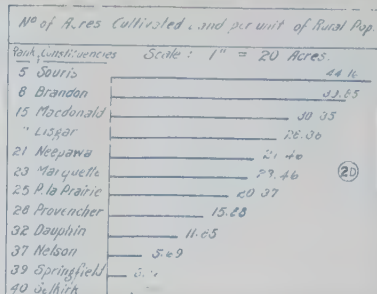 Nº of Acres Cultivated Land per unit of Rural Pop.
Rank Constituencies Scale: 1" = 20 Acres.
5 Souris 44.16
8 Brandon
15 Macdonald 30.35
" Lisgar
21 Neepawa
23 Marquette 29.46
25 P. la Prairie 20.37
28 Provencher 15.88
32 Dauphin 11.65
37 Nelson 5.69
39 Springfield
40 Selkirk
2D